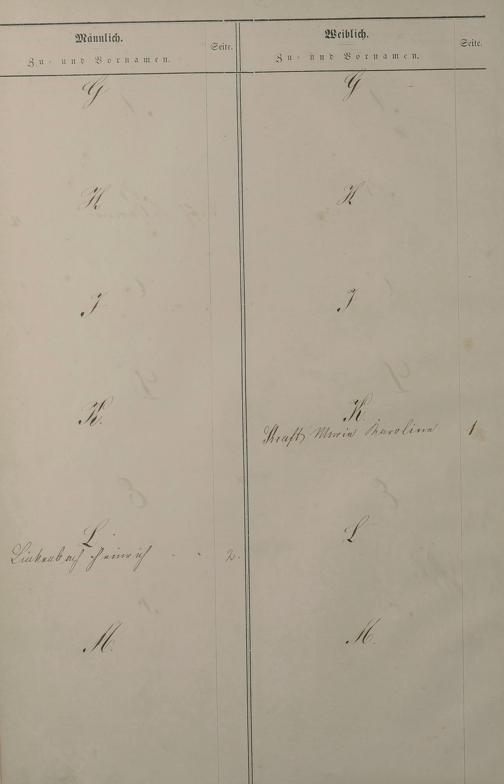 Männlich.
Zu- und Vornamen.
Seite.
G
H
J
K.
L.
Linkenbach Heinrich 2.
M.
Weiblich.
Zu- und Vornamen.
Seite.
G
H
J
K.
Kraft Maria Karolina 1
L
M.